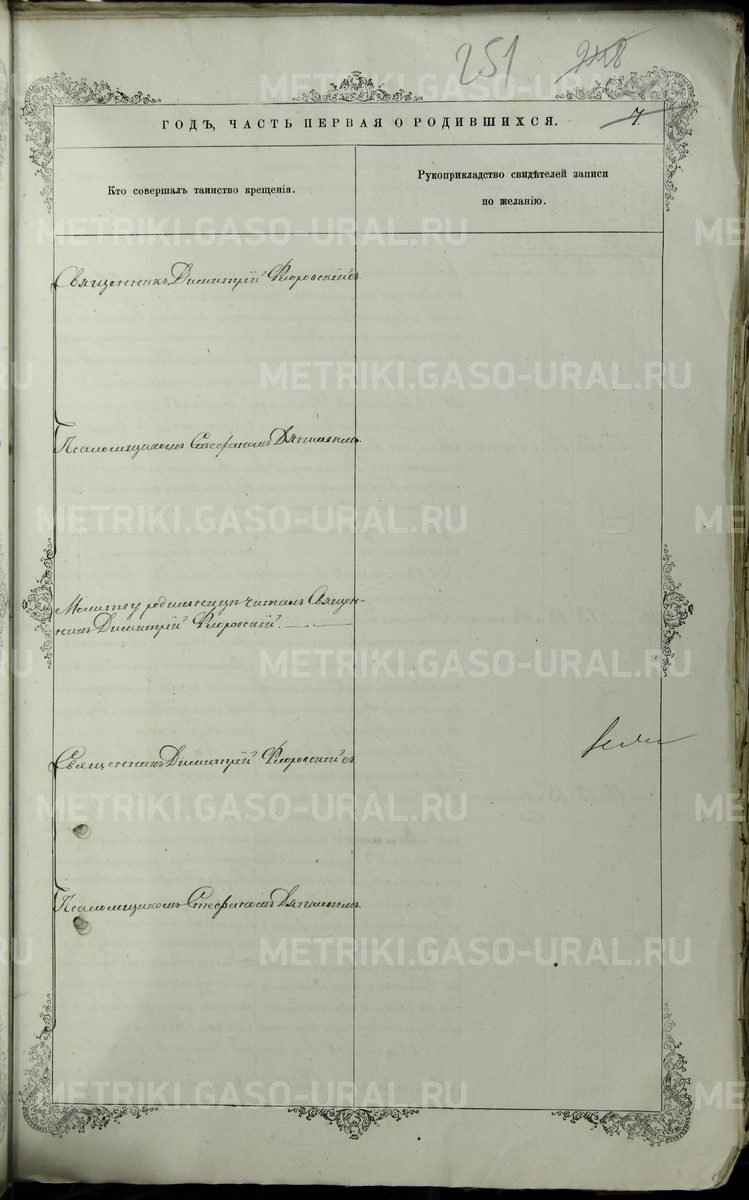 251 248
ГОДЪ, ЧАСТЬ ПЕРВАЯ О РОДИВШИХСЯ. 7.
Кто совершалъ таинство крещенія.
Рукоприкладство свидѣтелей записи
по желанію.
Священникъ Димитрій Флоровскій съ
Псаломщикомъ Стефаномъ
Молитву родильницѣ читалъ Священ-
никъ Димитрій Флоровскій.
Священникъ Димитрій Флоровскій съ
Псаломщикомъ Стефаномъ
METRIKI.GASO-URAL.RU